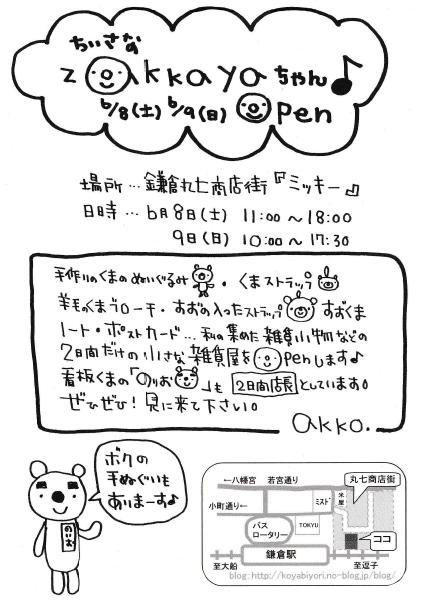 ちいさな
zakkayaちゃん♪
6/8(土) 6/9(日) Open
場所…鎌倉丸七商店街『ミッキー』
日時…6月8日(土) 11:00～18:00
9日(日) 10:00～17:30
手作りのくまのぬいぐるみ・くまストラップ
羊毛のくまブローチ・すずの入ったストラップ すずくま
ノート・ポストカード…私の集めた雑貨小物などの
2日間だけの小さな雑貨屋をOpenします♪
看板くまの「のりお」も 2日間店長 としています。
ぜひぜひ!見に来て下さい。
akko.
ボクの
手ぬぐいも
ありまーす♪
のりお
←八幡宮 若宮通り→
丸七商店街
小町通り←
ミスド
米屋
バス
ロータリー
TOKYU
ココ
鎌倉駅
至大船
至逗子
blog:http://koyabiyori.no-blog.jp/blog/